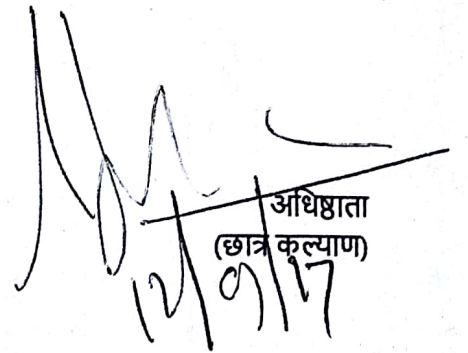 अधिष्ठाता
(छात्र कल्याण)
12/9/17